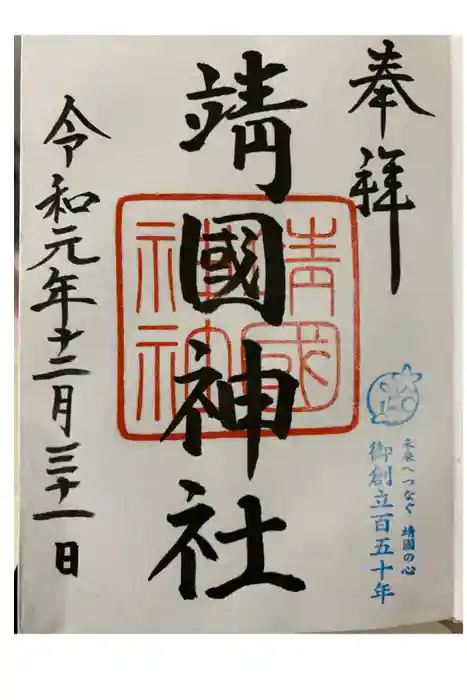 奉拝
靖國神社
靖國神社
未来へつなぐ 靖國の心
御創立百五十年
令和元年十二月三十一日